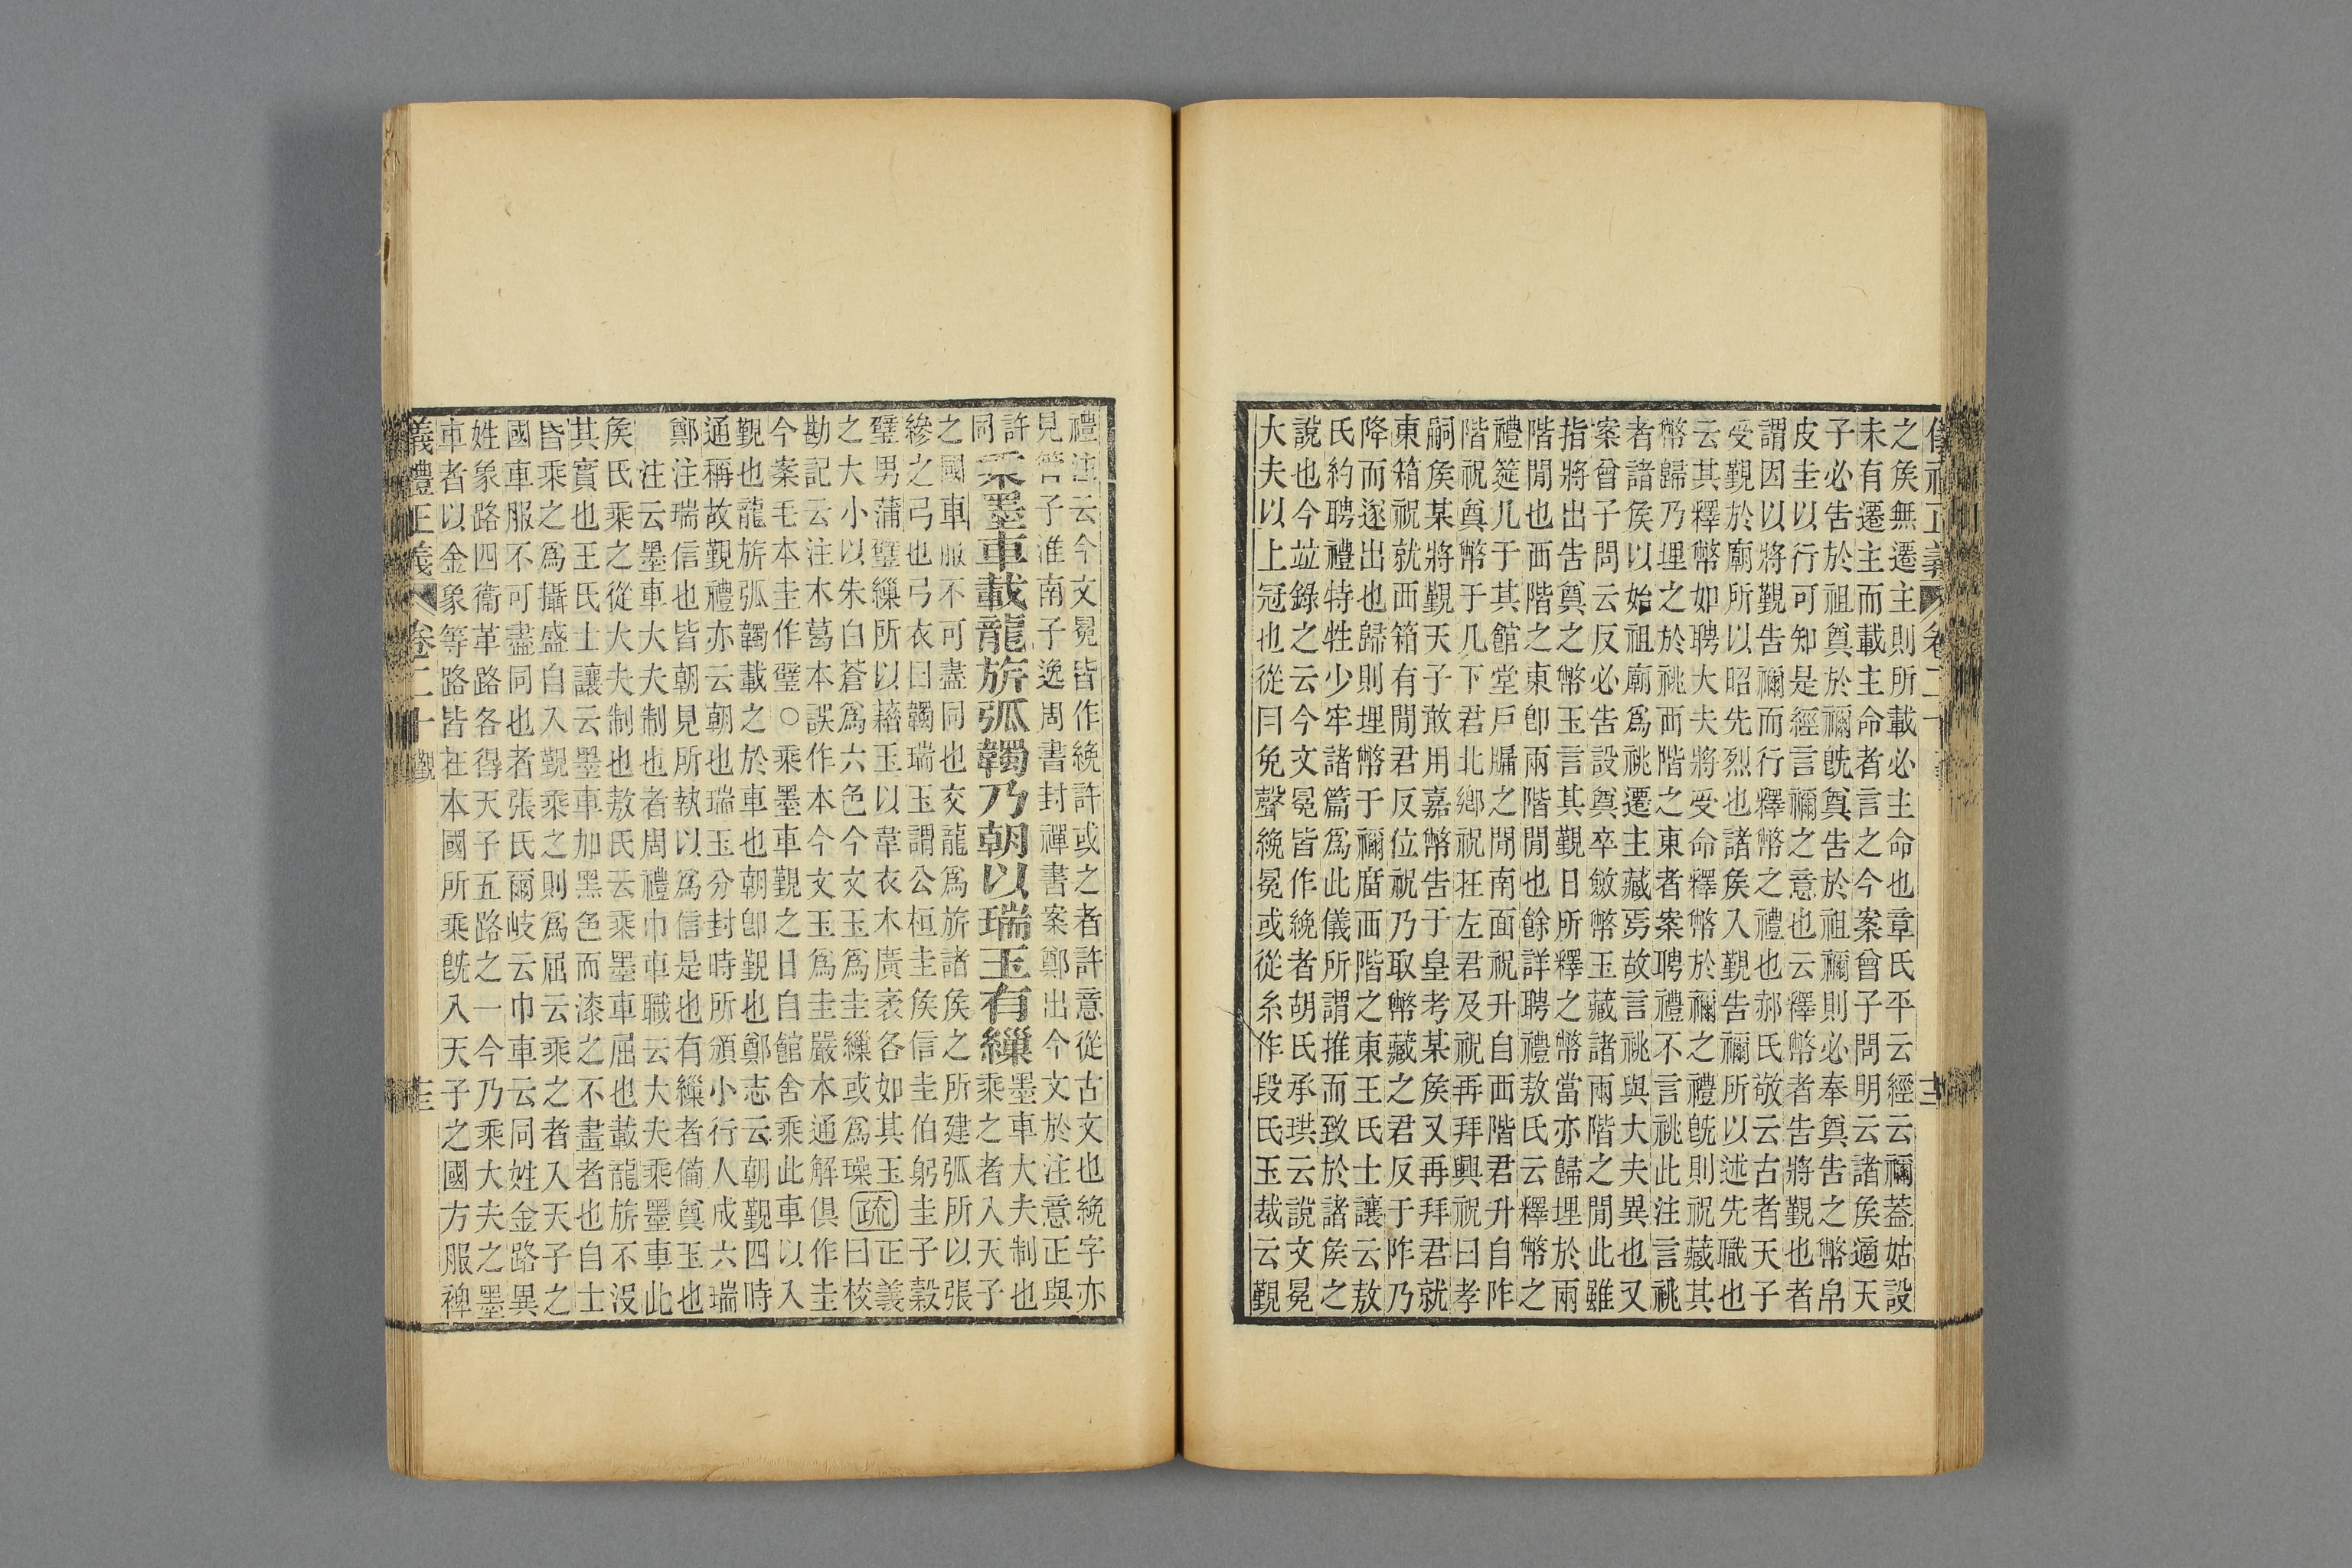 之侯無遷主則所載必主命也章氏平云經云禰蓋姑設
未有遷主而載主命者言之今案曾子問明云諸侯適天
子必告於祖奠於禰旣奠告於祖禰則必奉奠告之幣帛
皮圭以行可知是經言禰之意也云釋幣者告將覲也者
謂因以將覲告禰而行釋幣之禮也郝氏敬云古者天子
受覲於廟所以昭先烈也諸侯入覲告禰所以述先職也
云其釋幣如聘大夫將受命釋幣於禰之禮旣則祝藏其
幣歸乃埋之於祧西階之東者案聘禮不言祧此注言祧
者諸侯以始祖廟爲祧遷主藏焉故言祧與大夫異也又
案曾子問云反必告設奠卒斂幣玉藏諸兩階之閒此雖
指將出告奠之幣玉言其覲日所釋之幣當亦歸埋於兩
階閒也西階之東卽兩階閒也餘詳聘禮敖氏云釋幣之
禮筵几于其館堂戶牖之閒南面祝升自西階君升自阼
階祝奠幣于几下君北鄉祝在左君及祝再拜興祝曰孝
嗣侯某將覲天子敢用嘉幣告于皇考某侯又再拜君就
東箱祝就西箱有閒君反位祝乃取幣藏之君反于阼乃
降而遂出也歸則埋幣于禰廟西階之東王氏士讓云敖
氏約聘禮特牲少牢諸篇爲此儀所謂推而致於諸侯之
說也今竝錄之云今文冕皆作絻者胡氏承珙云說文冕
大夫以上冠也從曰免聲絻冕或從糸作段氏玉裁云覲
禮注云今文冕皆作絻許或之者許意從古文也絻字亦
見管子淮南子逸周書封禪書案鄭出今文於注意正與
許同
乘墨車載龍旂弧韣乃朝以瑞玉有繅
墨車大夫制也乘之者入天子
之國車服不可盡同也交龍爲旂諸侯之所建弧所以張
縿之弓也弓衣曰韣瑞玉謂公桓圭侯信圭伯躬圭子穀
璧男蒲璧繅所以藉玉以韋衣木廣袤各如其玉
之大小以朱白蒼爲六色今文玉爲圭繅或爲璪疏正義曰校
勘記云注木葛本誤作本今文玉爲圭嚴本通解俱作圭
今案毛本圭作璧○乘墨車覲之日自館舍乘此車以入
覲也龍旂弧韣載之於車也朝卽覲也鄭志云朝覲四時
通稱故覲禮亦云朝也瑞玉分封時所頒小行人成六瑞
鄭注瑞信也皆朝見所執以爲信是也有繅者備奠玉也
注云墨車大夫制也者周禮巾車職云大夫乘墨車此
侯氏乘之從大夫制也敖氏云乘墨車屈也載龍旂不沒
其實也王氏士讓云墨車加黑色而漆之不畫者也自士
皆乘之爲攝盛自入覲乘之則爲屈云乘之者入天子之
國車服不可盡同也者張氏爾岐云巾車云同姓金路異
姓象路四衞革路各得天子五路之一今乃乘大夫之墨
車者以金象等路皆在本國所乘旣入天子之國方服裨
義禮正義 卷二十 覲